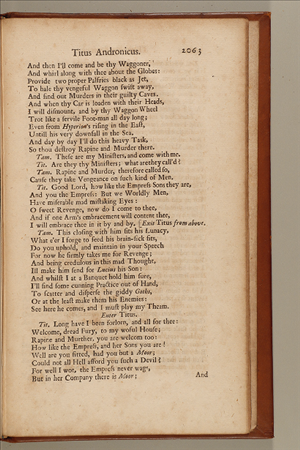 Titus Andronicus. 2063
And then I'll come and be thy Waggoner,
And whirl along with thee about the Globes:
Provide two proper Palfries black as Jet,
To hale thy vengeful Waggon swift away,
And find out Murders in their guilty Caves.
And when thy Car is loaden with their Heads,
I will dismount, and by thy Waggon Wheel
Trot like a servile Foot-man all day long;
Even from Hyperion's rising in the East,
Until his very downfall in the Sea.
And day by day I'll do this heavy Task,
So thou destroy Rapine and Murder there.
Tam. These are my Ministers, and come with me.
Tit. Are they thy Ministers; what are they call'd?
Tam. Rapine and Murder, therefore called so,
Cause they take Vengeance on such kind of Men.
Tit. Good Lord, how like the Empress Sons they are,
And you the Empress: But we Worldly Men,
Have miserable mad mistaking Eyes:
O sweet Revenge, now do I come to thee,
And if one Arm's embracement will content thee,
I will embrace thee in it by and by. [Exit Titus from above.
Tam. This closing with him fits his Lunacy.
What e'er I forge to feed his brain-sick fits,
Do you uphold, and maintain in your Speech
For now he firmly takes me for Revenge;
And being credulous in this mad Thought,
Ill make him send for Lucius his Son:
And whilst I at a Banquet hold him sure,
I'll find some cunning Practice out of Hand,
To scatter and disperse the giddy Goths,
Or at the least make them his Enemies:
See here he comes, and I must play my Theam.
Enter Titus.
Tit. Long have I been forlorn, and all for thee:
Welcome, dread Fury, to my woful House;
Rapine and Murther, you are welcom too:
How like the Empress, and her Sons you are!
Well are you fitted, had you but a Moor;
Could not all Hell afford you such a Devil?
For well I wot, the Empress never wags,
But in her Company there is Moor;
And